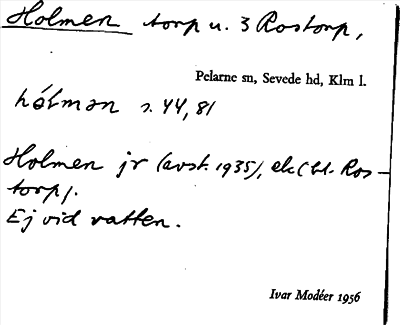 Holmen torp u. 3 Rostorp,
Pelarne sn, Sevede hd, Klm l.
hólmən s. 44, 81
Holmen jr (avst. 1935), ek (bl. Ros-
torp).
Ej vid vatten.
Ivar Modéer 1956